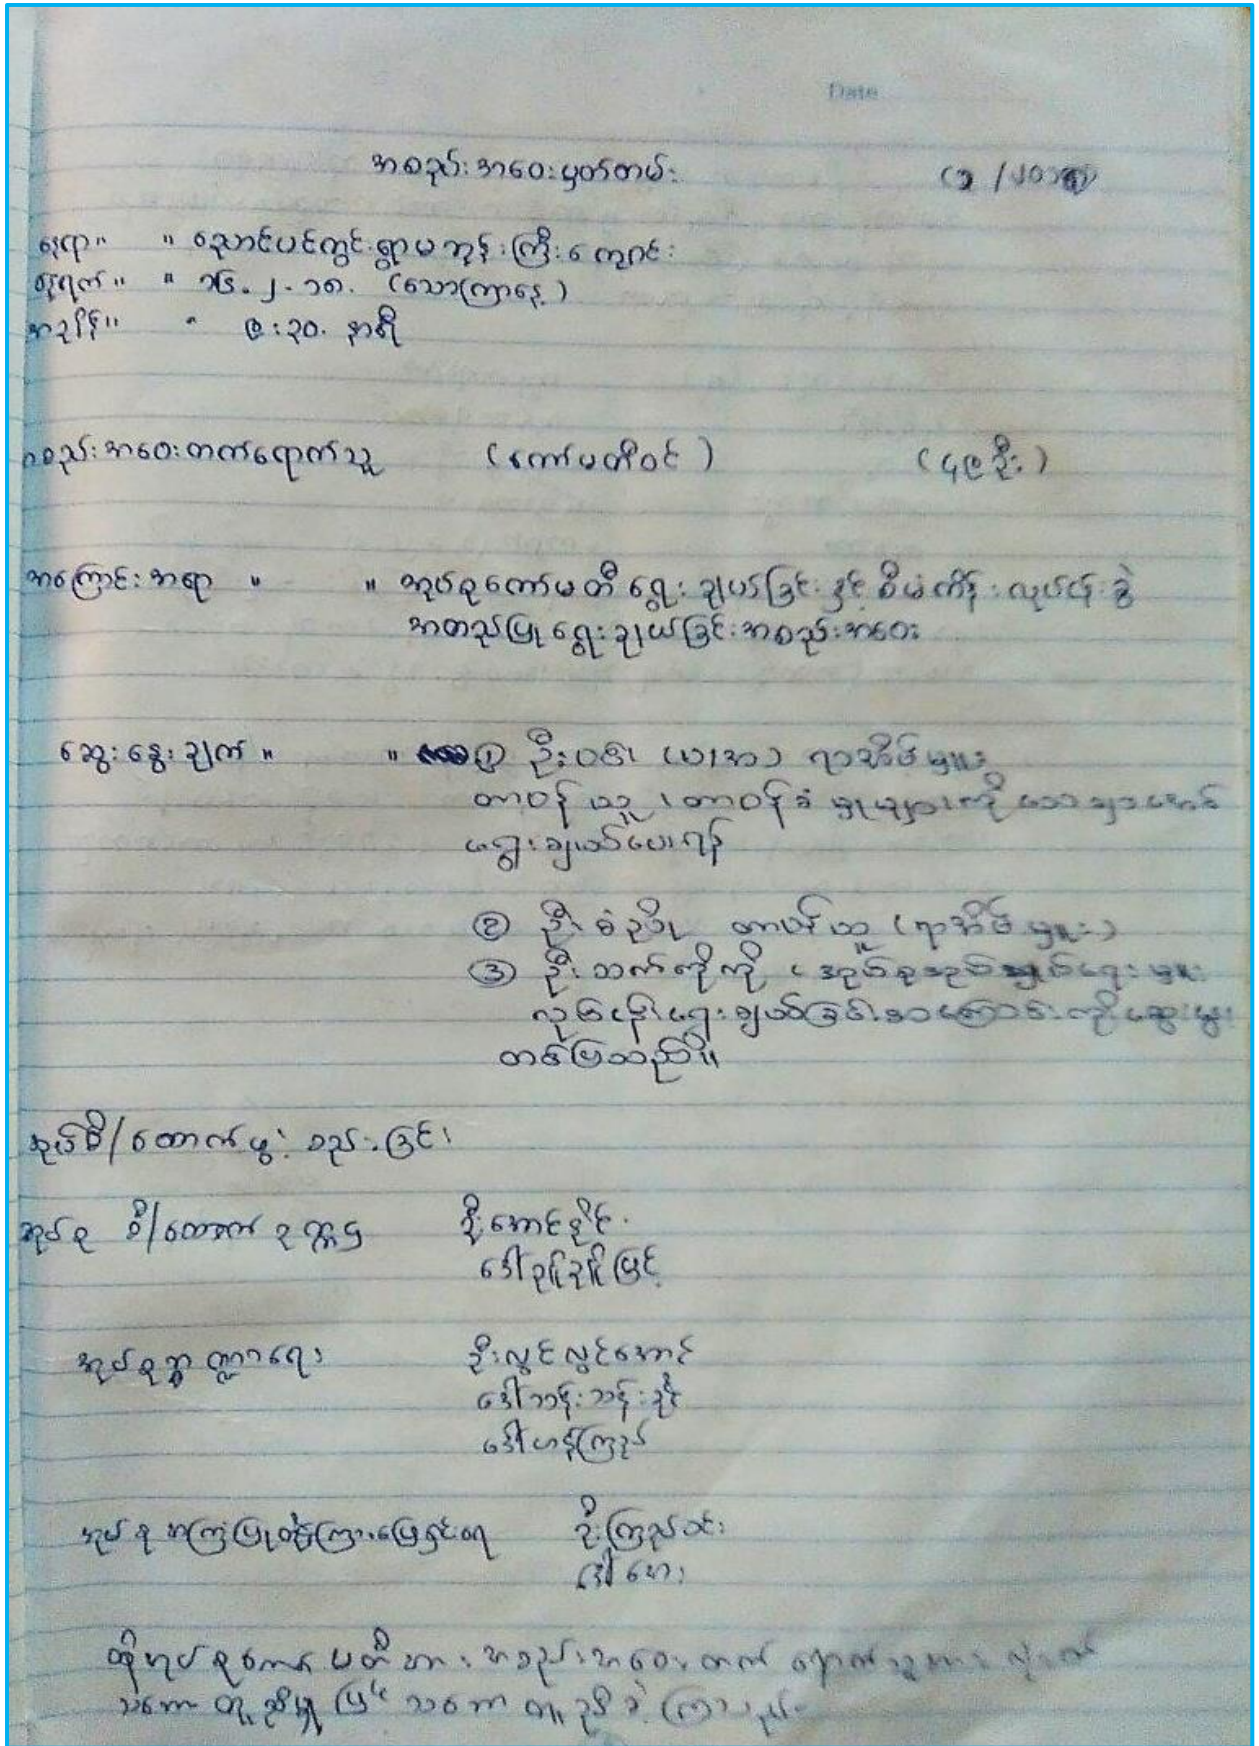 Date
အစည်းအဝေးမှတ်တမ်း
နေရာ ။ ။ ညောင်ပင်ကွင်းရွာမဘုန်းကြီးကျောင်း
နေ့ရက် ။ ။ ၁၆.၂.၁၈. (သောကြာနေ့)
အချိန် ။ ။ ၉း၃၀. နာရီ
အစည်းအဝေးတက်ရောက်သူ (ကော်မတီဝင်) (၄၉ဦး)
အကြောင်းအရာ ။ ။ အုပ်စုကော်မတီရွေးချယ်ခြင်းနှင့် စီမံကိန်းလုပ်ငန်းခွဲ
အတည်ပြုရွေးချယ်ခြင်းအစည်းအဝေး
ဆွေးနွေးချက် ။ ။ ① ဦး (ယ/အ) ရာအိမ်မှူး
တာဝန်ယူ၊ တာဝန်ခံမှုများကို သေချာအောင်
ရွေးချယ်ပေးရန်
② ဦးစံဦး တာဝန်ယူ (ရာအိမ်မှူး)
③ ဦးသက်ကိုကို (အုပ်စုအုပ်ချုပ်ရေးမှူး
လုပ်ငန်းရွေးချယ်ခြင်းအကြောင်းကိုဆွေးနွေး
တင်ပြသည်။
အုပ်စီ/ထောက်ဖွဲ့စည်းခြင်း
အုပ်စု စီ/ထောက် ဥက္ကဌ ဦးအောင်နိုင်
ဒေါ်ချိုချိုမြင့်
အုပ်စုဘဏ္ဍာရေး ဦးလွင်လွင်အောင်
ဒေါ်သန်းသန်းခိုင်
ဒေါ်ဟန်ကြည်
အုပ်စု အကြံပြုတိုင်ကြားဖြေရှင်းရေး ဦးကြည်ဝင်း
ဒေါ်အေး
ထိုအုပ်စုကော်မတီအား အစည်းအဝေးတက်ရောက်သူအား
သဘောတူညီမှု ဖြင့် သဘောတူညီခဲ့ကြသည်။